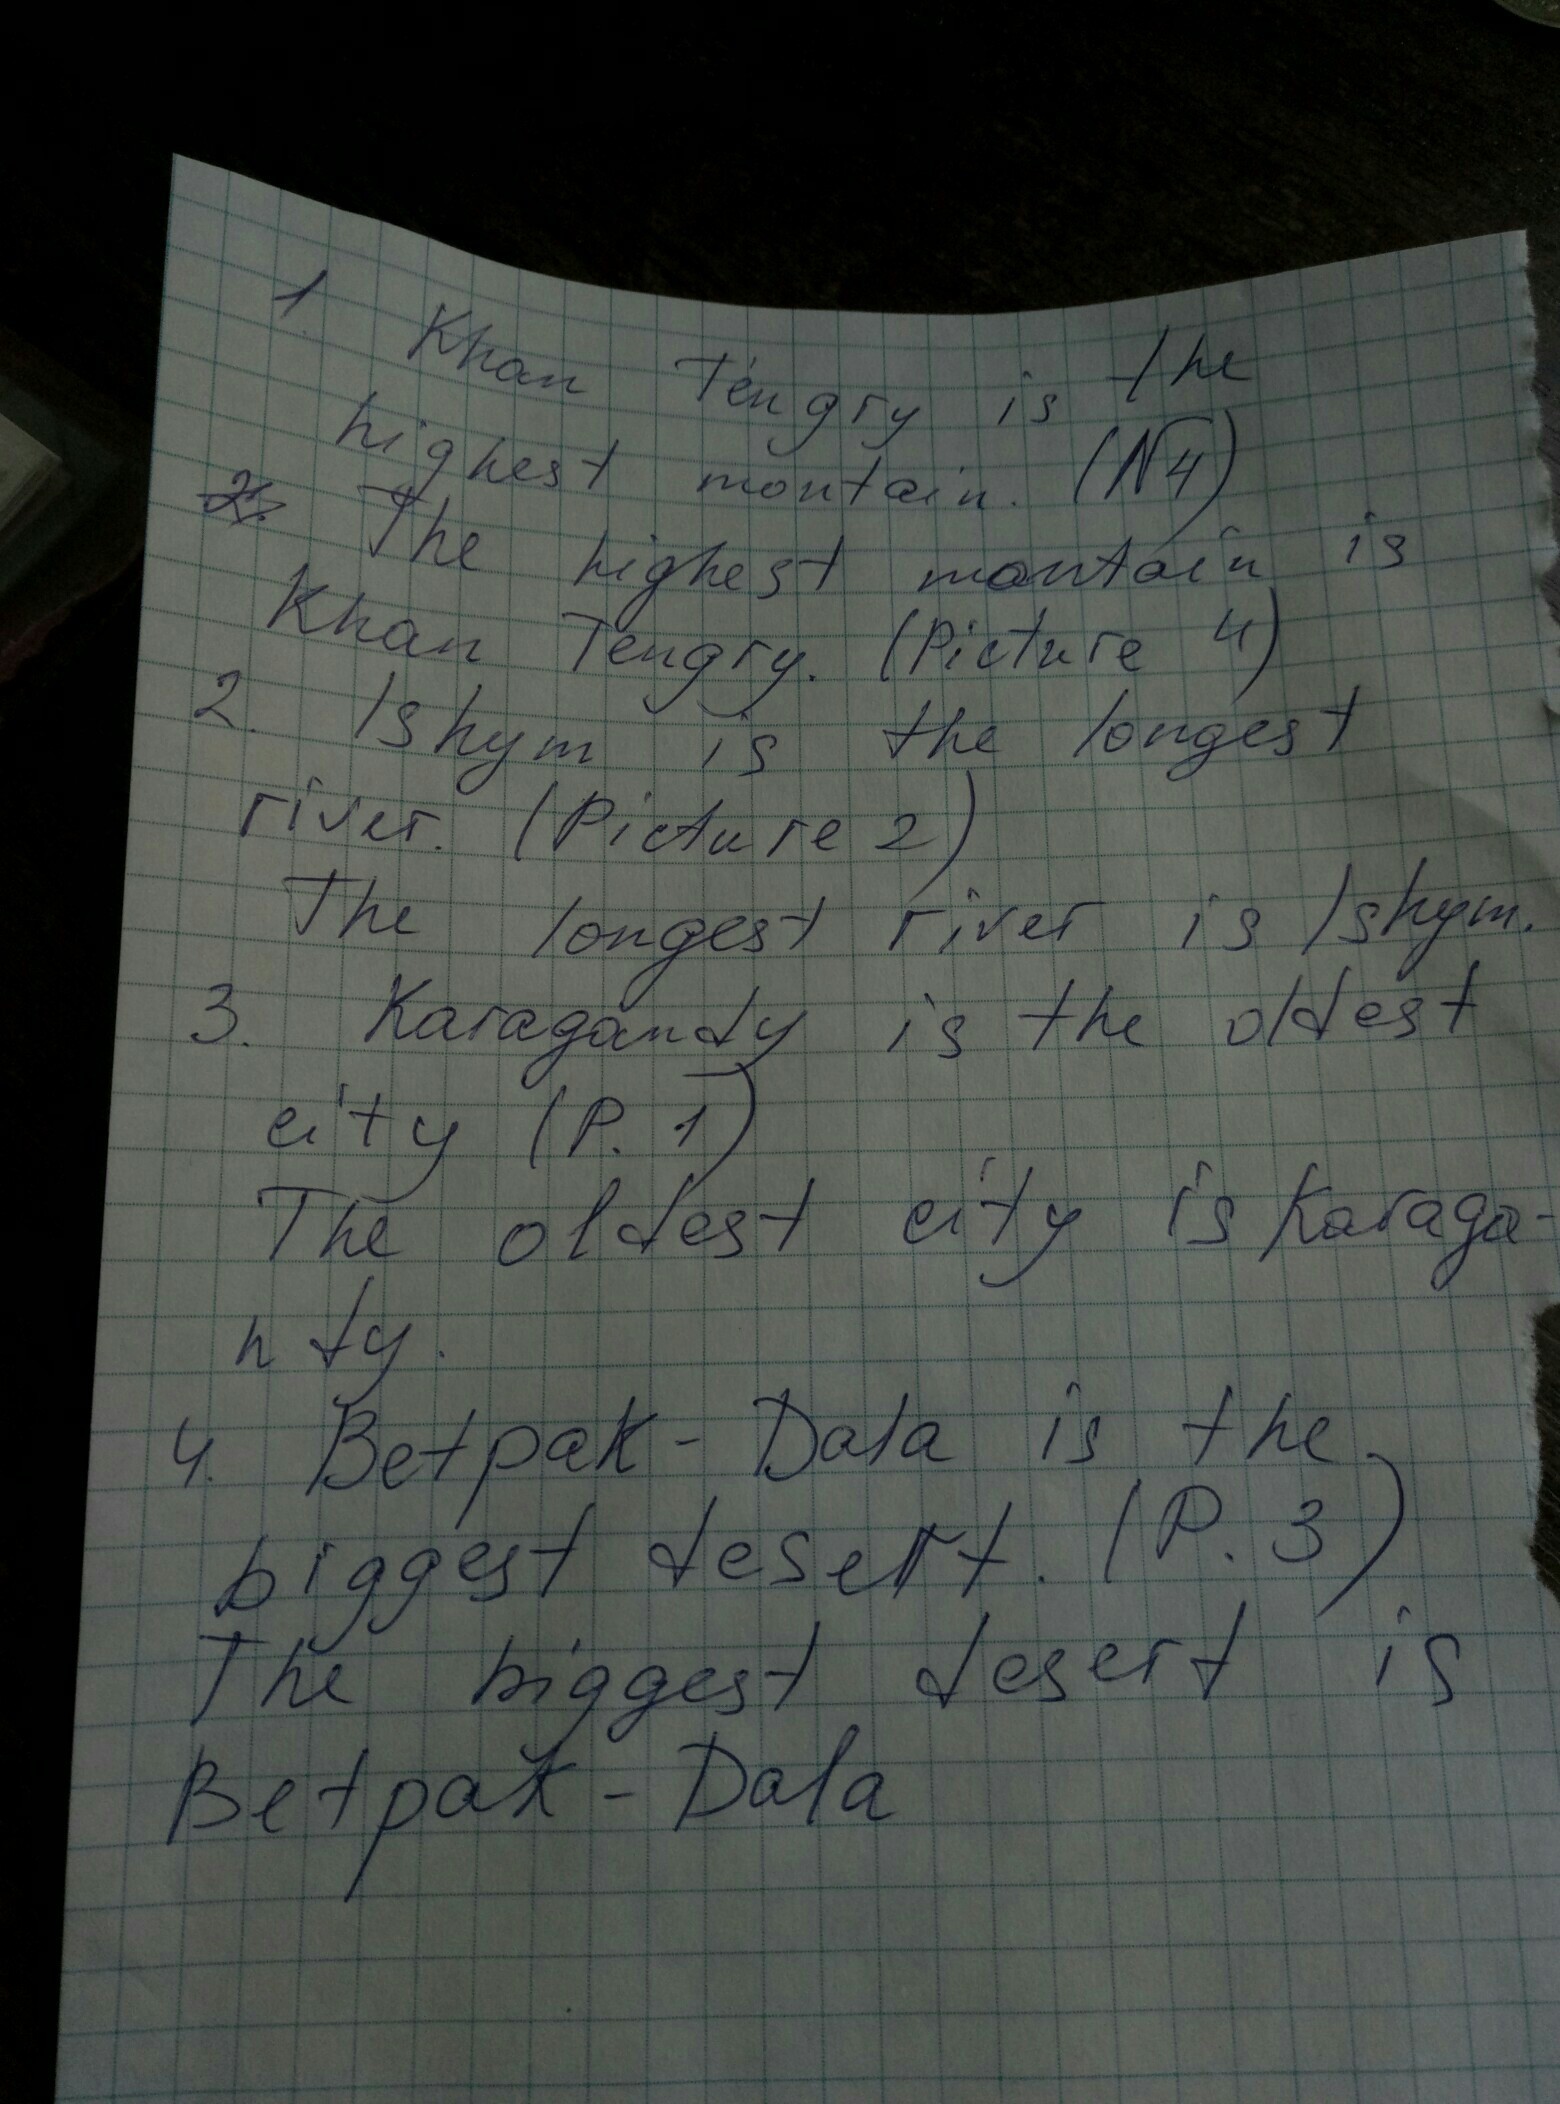 1. Khan Tengry is the
highest montain. (N4)
The highest montain is
Khan Tengry. (Picture 4)
2. Ishym is the longest
river. (Picture 2)
The longest river is Ishym.
3. Karagandy is the oldest
city (P. 1)
The oldest city is Karaga-
ndy.
4. Betpak-Dala is the
biggest desert. (P. 3)
The biggest desert is
Betpak-Dala